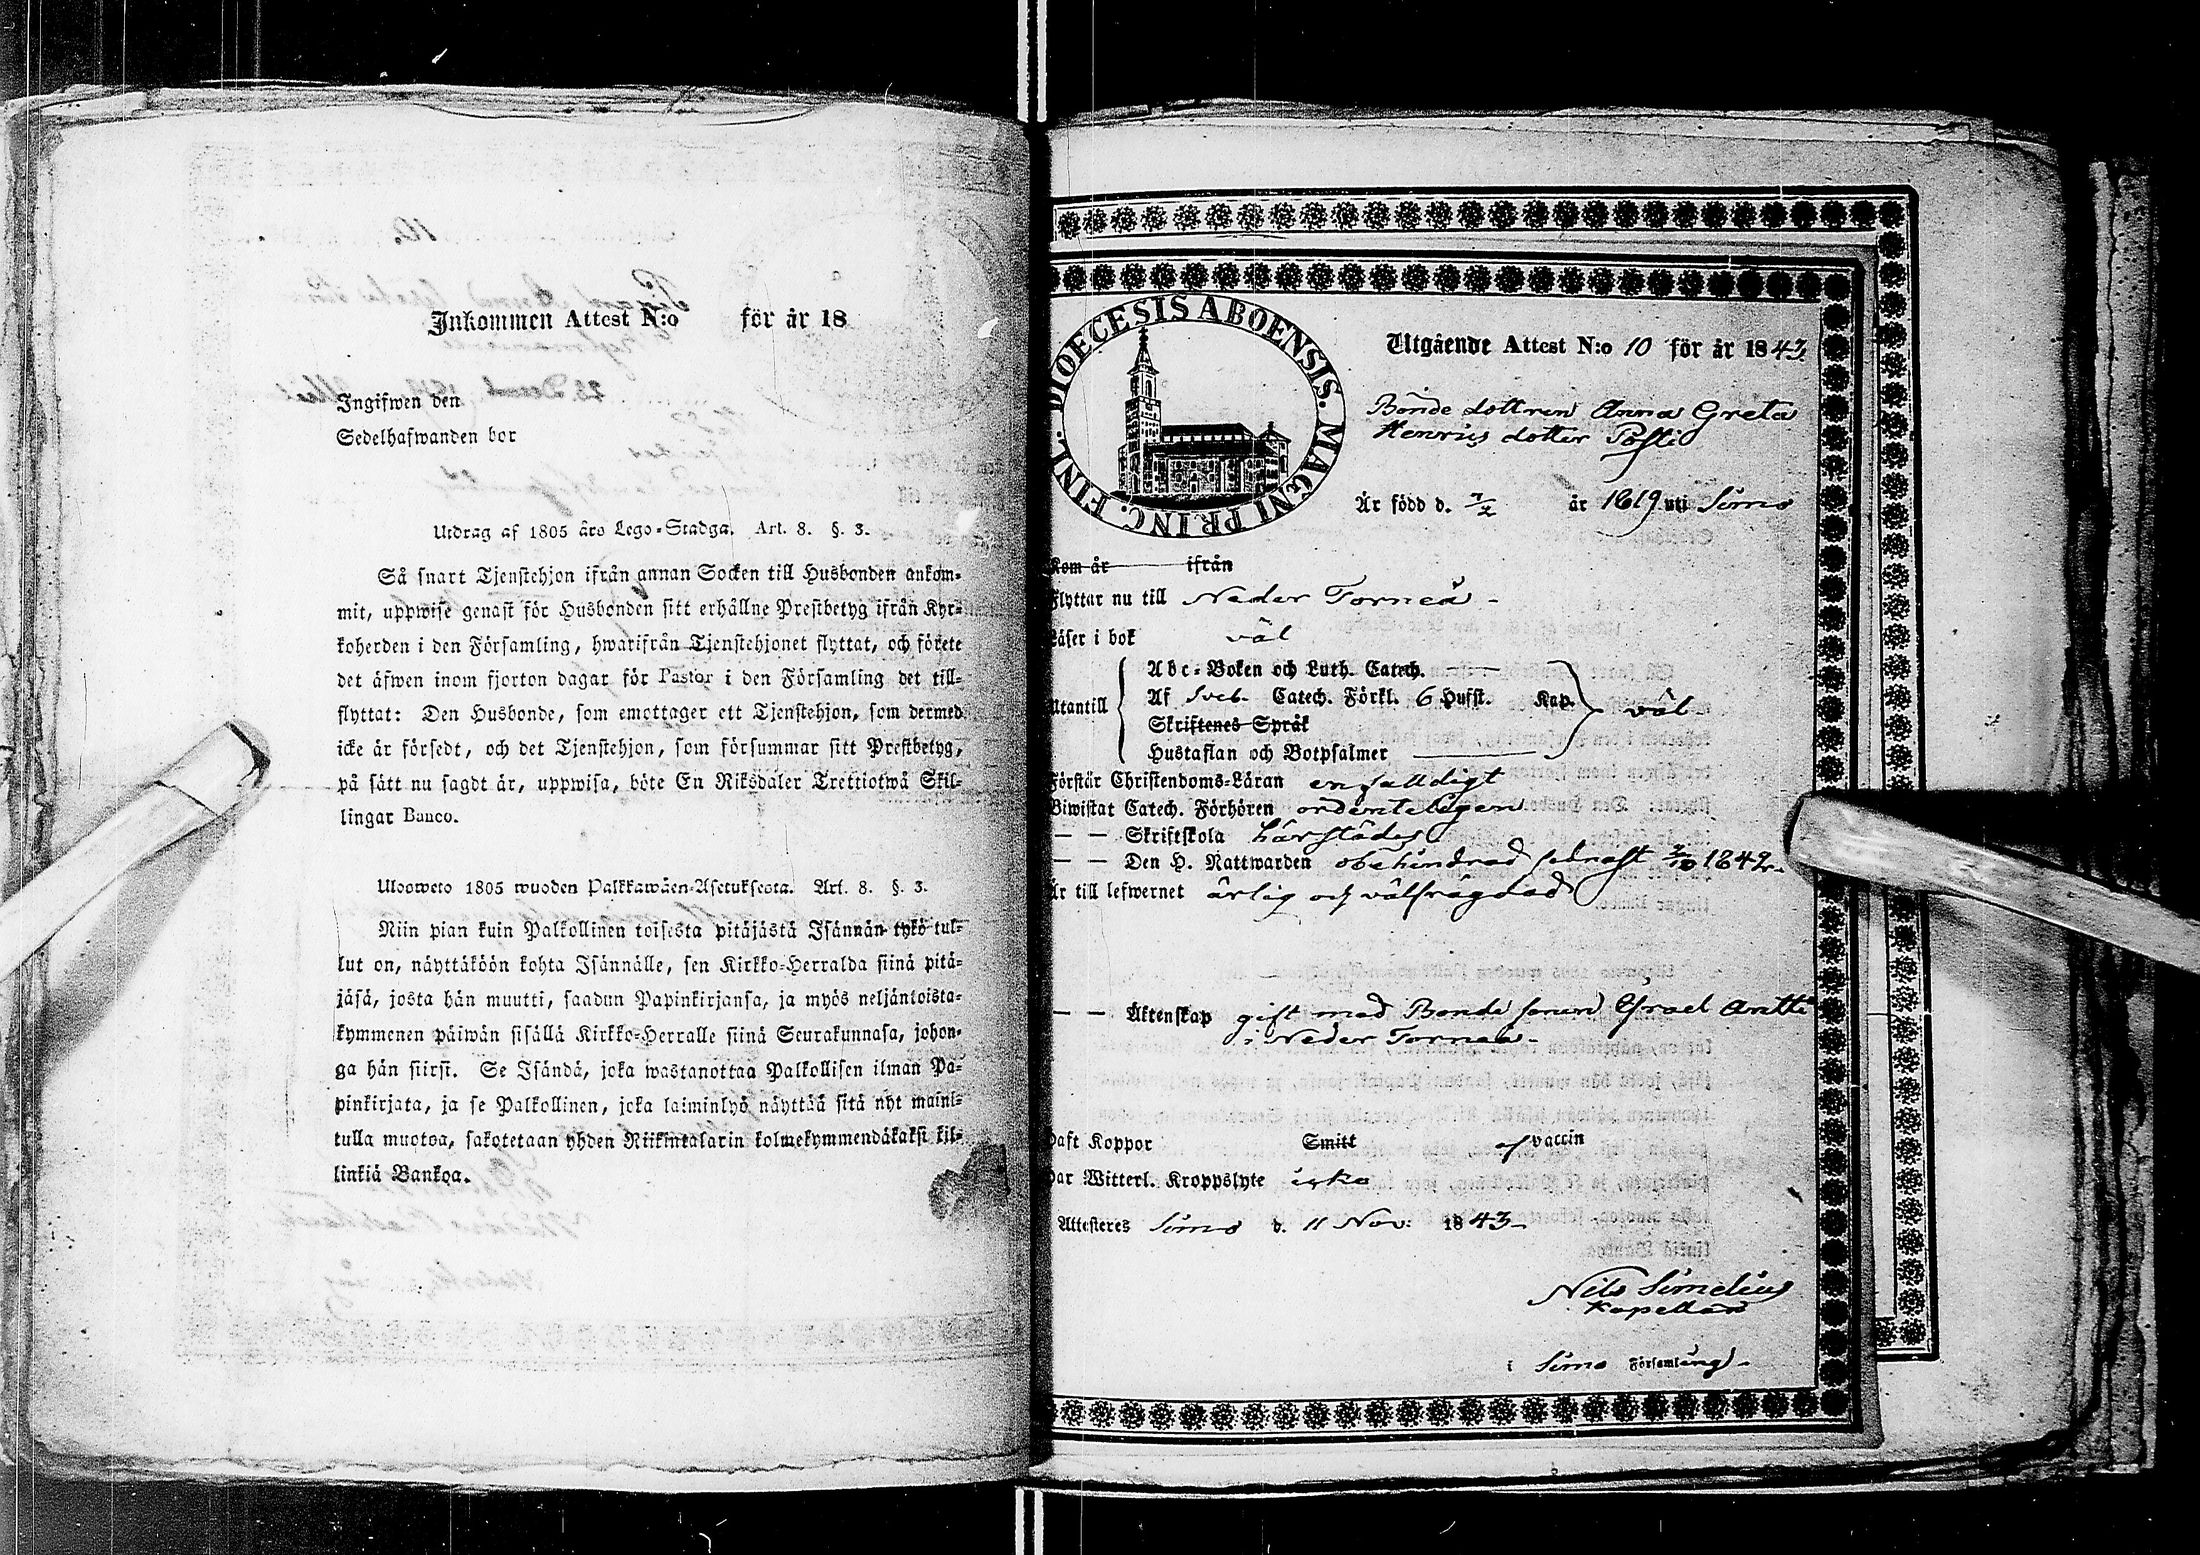 Inkommen Attest N:o för år 18
Ingifwen den
Sedelhafwanden bor
Utdrag af 1805 års Lego-Stadga. Art. 8. §. 3.
Så snart Tjenstehjon ifrån annan Socken till Husbonden ankom-
mit, uppwise genast för Husbonden sitt erhållne Prestbetyg ifrån Kyr-
koherden i den Församling, hwarifrån Tjenstehjonet flyttat, och förete
det äfwen inom fjorton dagar för Pastor i den Församling det till-
flyttat: Den Husbonde, som emottager ett Tjenstehjon, som dermed
icke är försedt, och det Tjenstehjon, som försummar sitt Prestbetyg,
på sätt nu sagdt är, uppwisa, böte En Riksdaler Trettiotwå Skil-
lingar Banco.
Ulosweto 1805 wuoden Palkkawäen-Asetuksesta. Art. 8. §. 3.
Niin pian kuin Palkollinen toisesta pitäjästä Isännän tykö tul-
lut on, näyttäköön kohta Isännälle, sen Kirkko-Herralda siinä pitä-
jäsä, josta hän muutti, saadun Papinkirjansa, ja myös neljäntoista-
kymmenen päiwän sisällä Kirkko-Herralle siinä Seurakunnasa, johon-
ga hän siirsi. Se Isändä, joka wastanottaa Palkollisen ilman Pa-
pinkirjata, ja se Palkollinen, joka laiminlyö näyttää sitä nyt maini-
tulla muotoa, sakotetaan yhden Riikintalarin kolmekymmendäkaksi kil-
linkiä Bankoa.
FINL. DIOECESIS ABOENSIS. MAGNI PRINC.
Utgående Attest N:o 10 för år 1843
Bonde dottren Anna Greta
Henrics dotter Posti
Är född d. 7/2 år 1819 uti Simo
Kom år ifrån
Flyttar nu till Neder Torneå -
Läser i bok väl
Abc-Boken och Luth. Catech.
Utantill Af Sveb. Catech. Förkl. 6 Hufst. Kap. väl
Skriftenes Språk
Hustaflan och Botpsalmer
Förstår Christendoms-Läran enfalldigt
Biwistat Catech. Förhören ordenteligen
— — Skriftskola härstädes
— — Den H. Nattwarden obehindrad sednast 2/10 1842.
Är till lefwernet ärlig och välfrägdad
— — Äktenskap gift med Bonde sonen Israel Antti
i Neder Torneå -
Haft Koppor Smitt af vaccin
Har Witterl. Kroppslyte icke
Attesteres Simo d. 11 Nov: 1843 -
Nils Simelius
Kapellan
i Simo Församling -